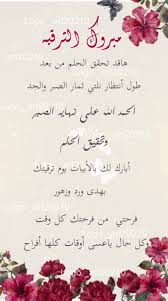 مبروك الترقيه
هاقد تحقق الحلم من بعد
طول أنتظار نلتي ثمار الصبر والجد
الحمد الله على نهايه الصبر
وتحقيق الحلم
أبارك لك بالأبيات يوم ترقيتك
بهدى ورد وزهور
فرحتي من فرحتك كل وقت
وكل حال ياعسى أوقات كلها أفراح